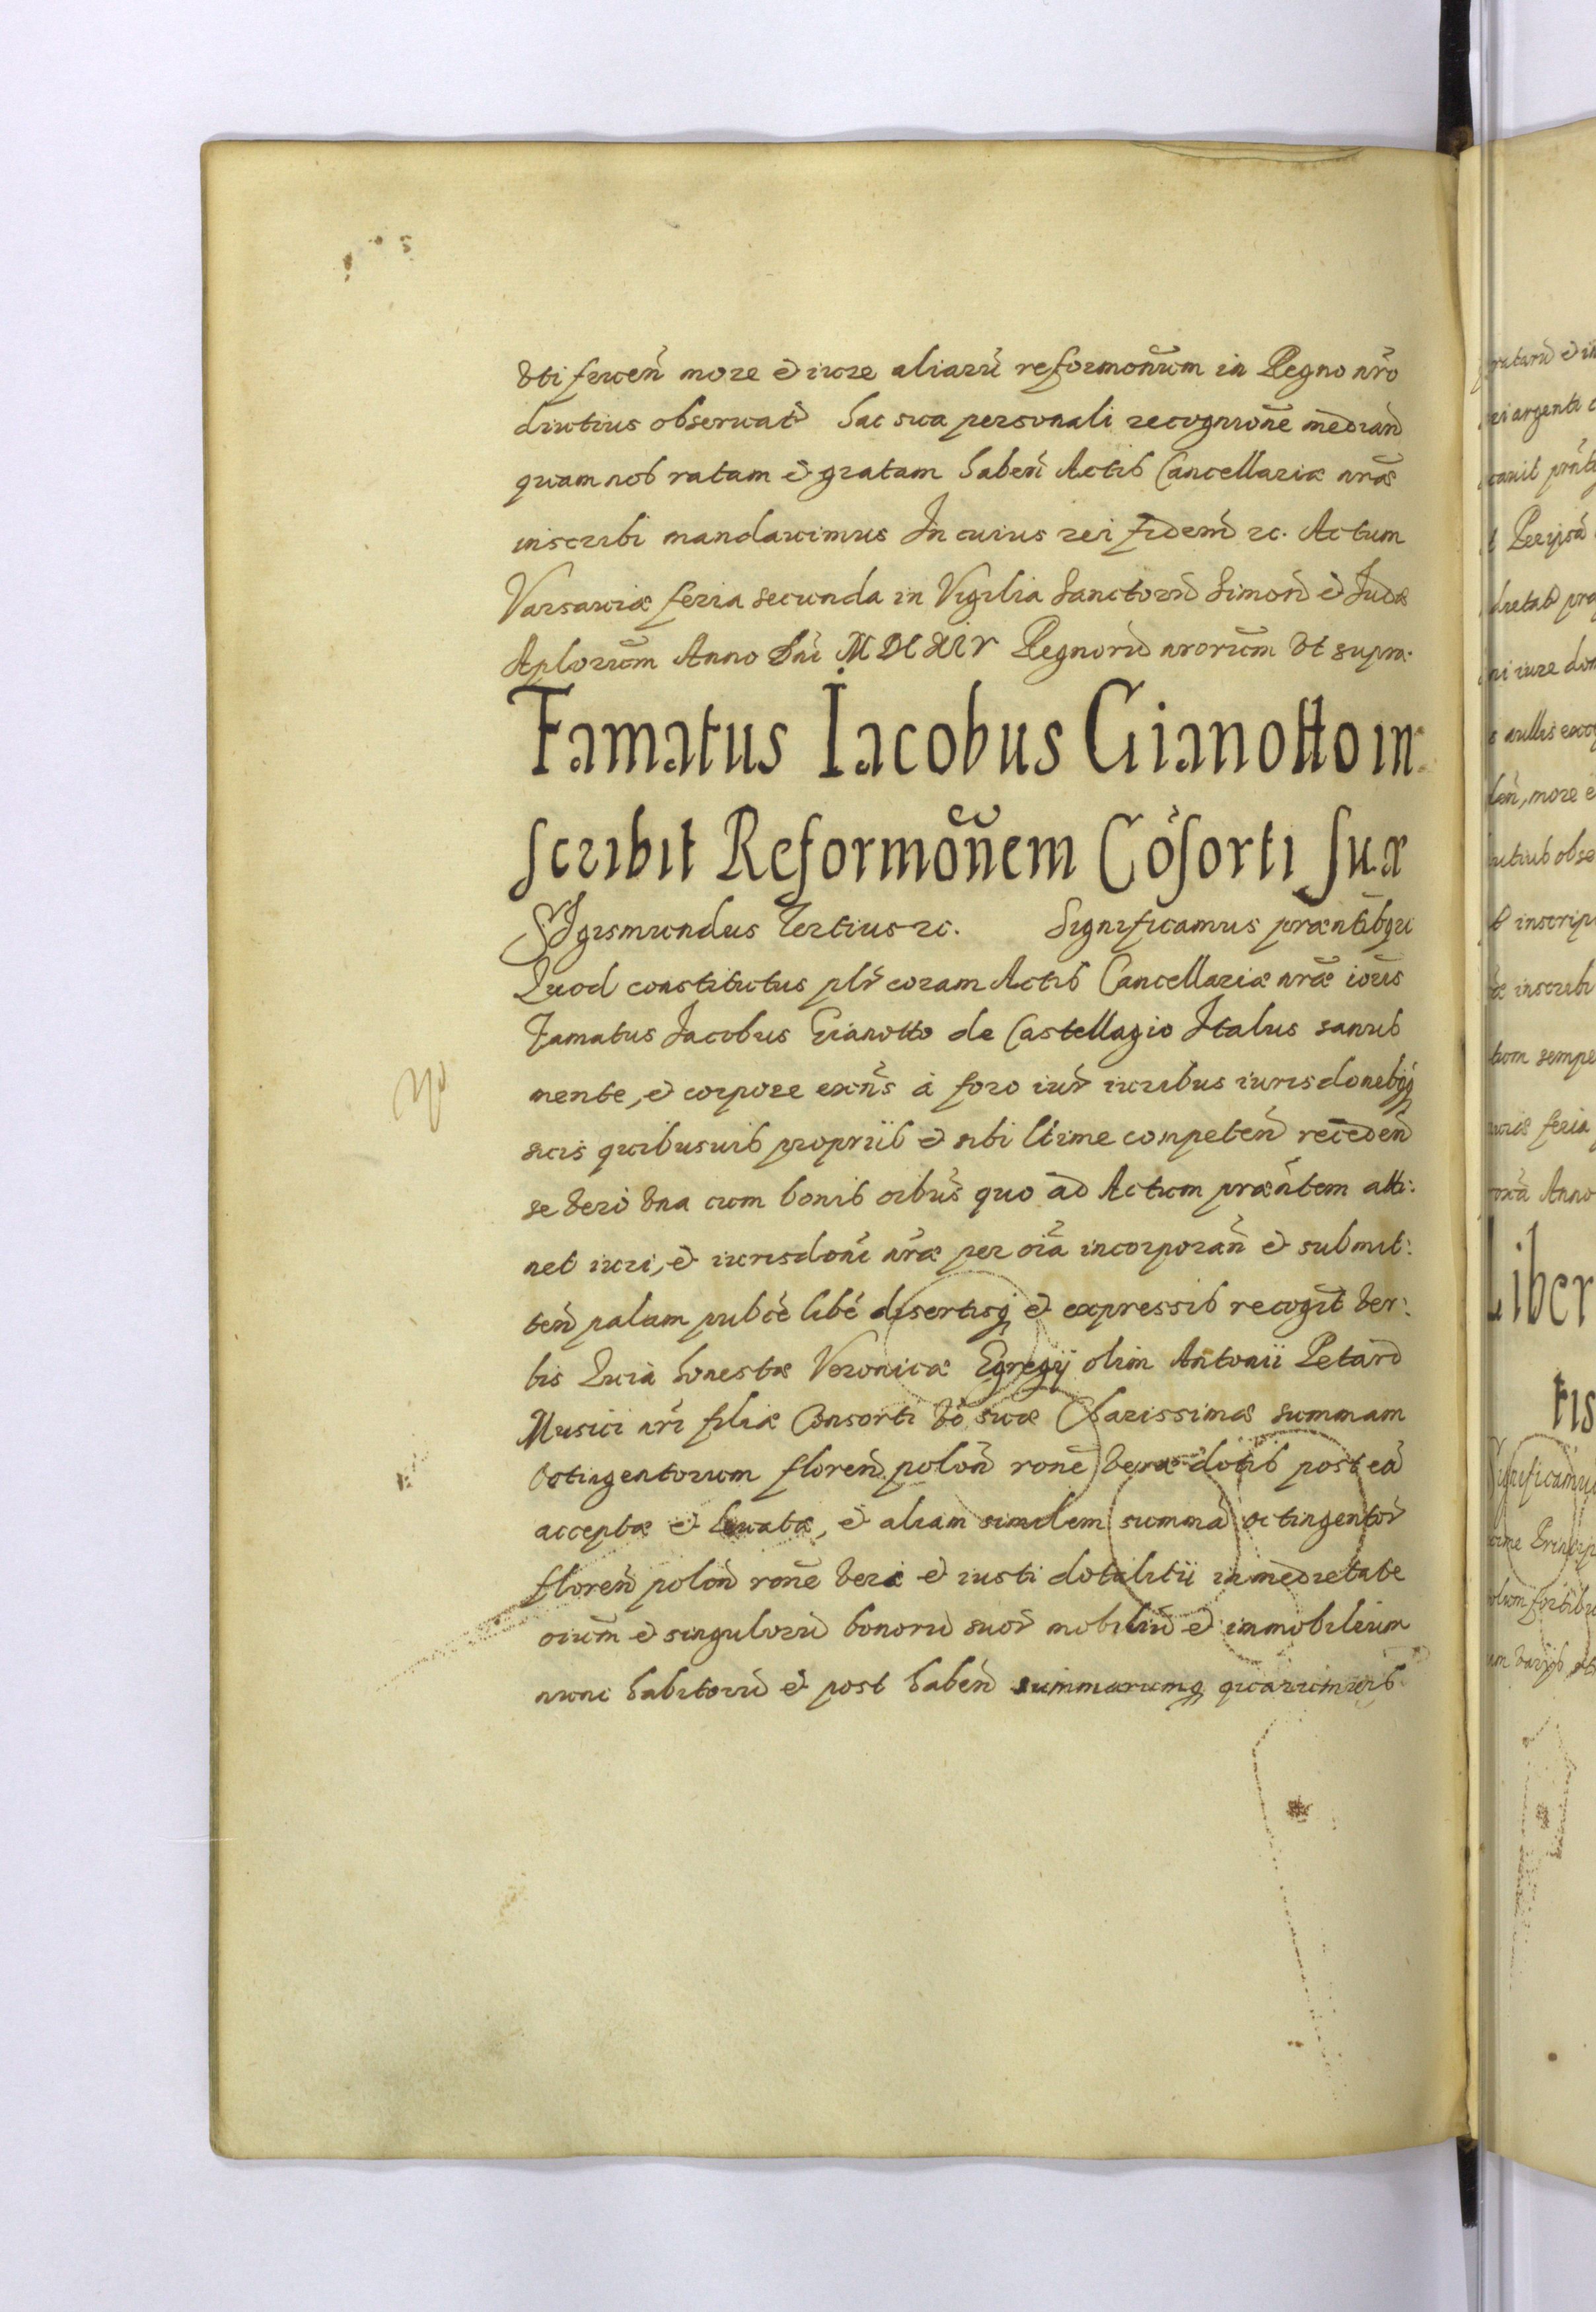 Vti fruen̄ more et iure aliarū reformon̄um in Regno nr̄o
diutius obseruat̄ hac sua personali recognione mediand
quam nos ratam et gratam haben̄ Actis Cancellariæ nr̄æ
inscribi mandauimus In cuius rei fidem̄ ꝛc. Actum
Varsauiæ feria secunda in Vigilia Sanctorū Simon̄ et Iudæ
Aplorum Anno Dn̄i MDCXIV Regnorū nrorum Vt supra.
Famatus Iacobus Gianotto in
scribit Reformon̄em Cōsorti suæ
SIgismundus Tertius ꝛc. Significamus præntibq̄
Quod constitutus plr̄ coram Actis Cancellariæ nr̄æ
Famatus Iacobus Gianotto de Castellagio Italus sanus
mente, et corpore exn̄s à foro iur̄ iuribus iurisdonibq̄
suis quibusuis propriis et sibi ltime competen̄ receden̄
se vero vna cum bonis oibus quo ad Actum præn̄tem atti:
net iuri, et iurisdoni nr̄æ per oīa incorporan̄ et submit:
ten̄ palam pubcè libè disertisq̄ et expressis recogit ver:
bis Quia honestæ Veronicæ Egregij olim Antonii Petard
Musici nr̄i filiæ Consorti vō suæ Charissimæ summam
Octingentorum floren̄ polon̄ rone veræ dotis post eā
acceptæ et leuatæ, et aliam similem summā octingentor̄
floren̄ polon̄ rone veri et iusti dotalitii in medietate
oium et singulorū bonorū suor̄ mobiliū et immobilium
nunc habitorū et post haben̄ summarumq̄ quarumuis